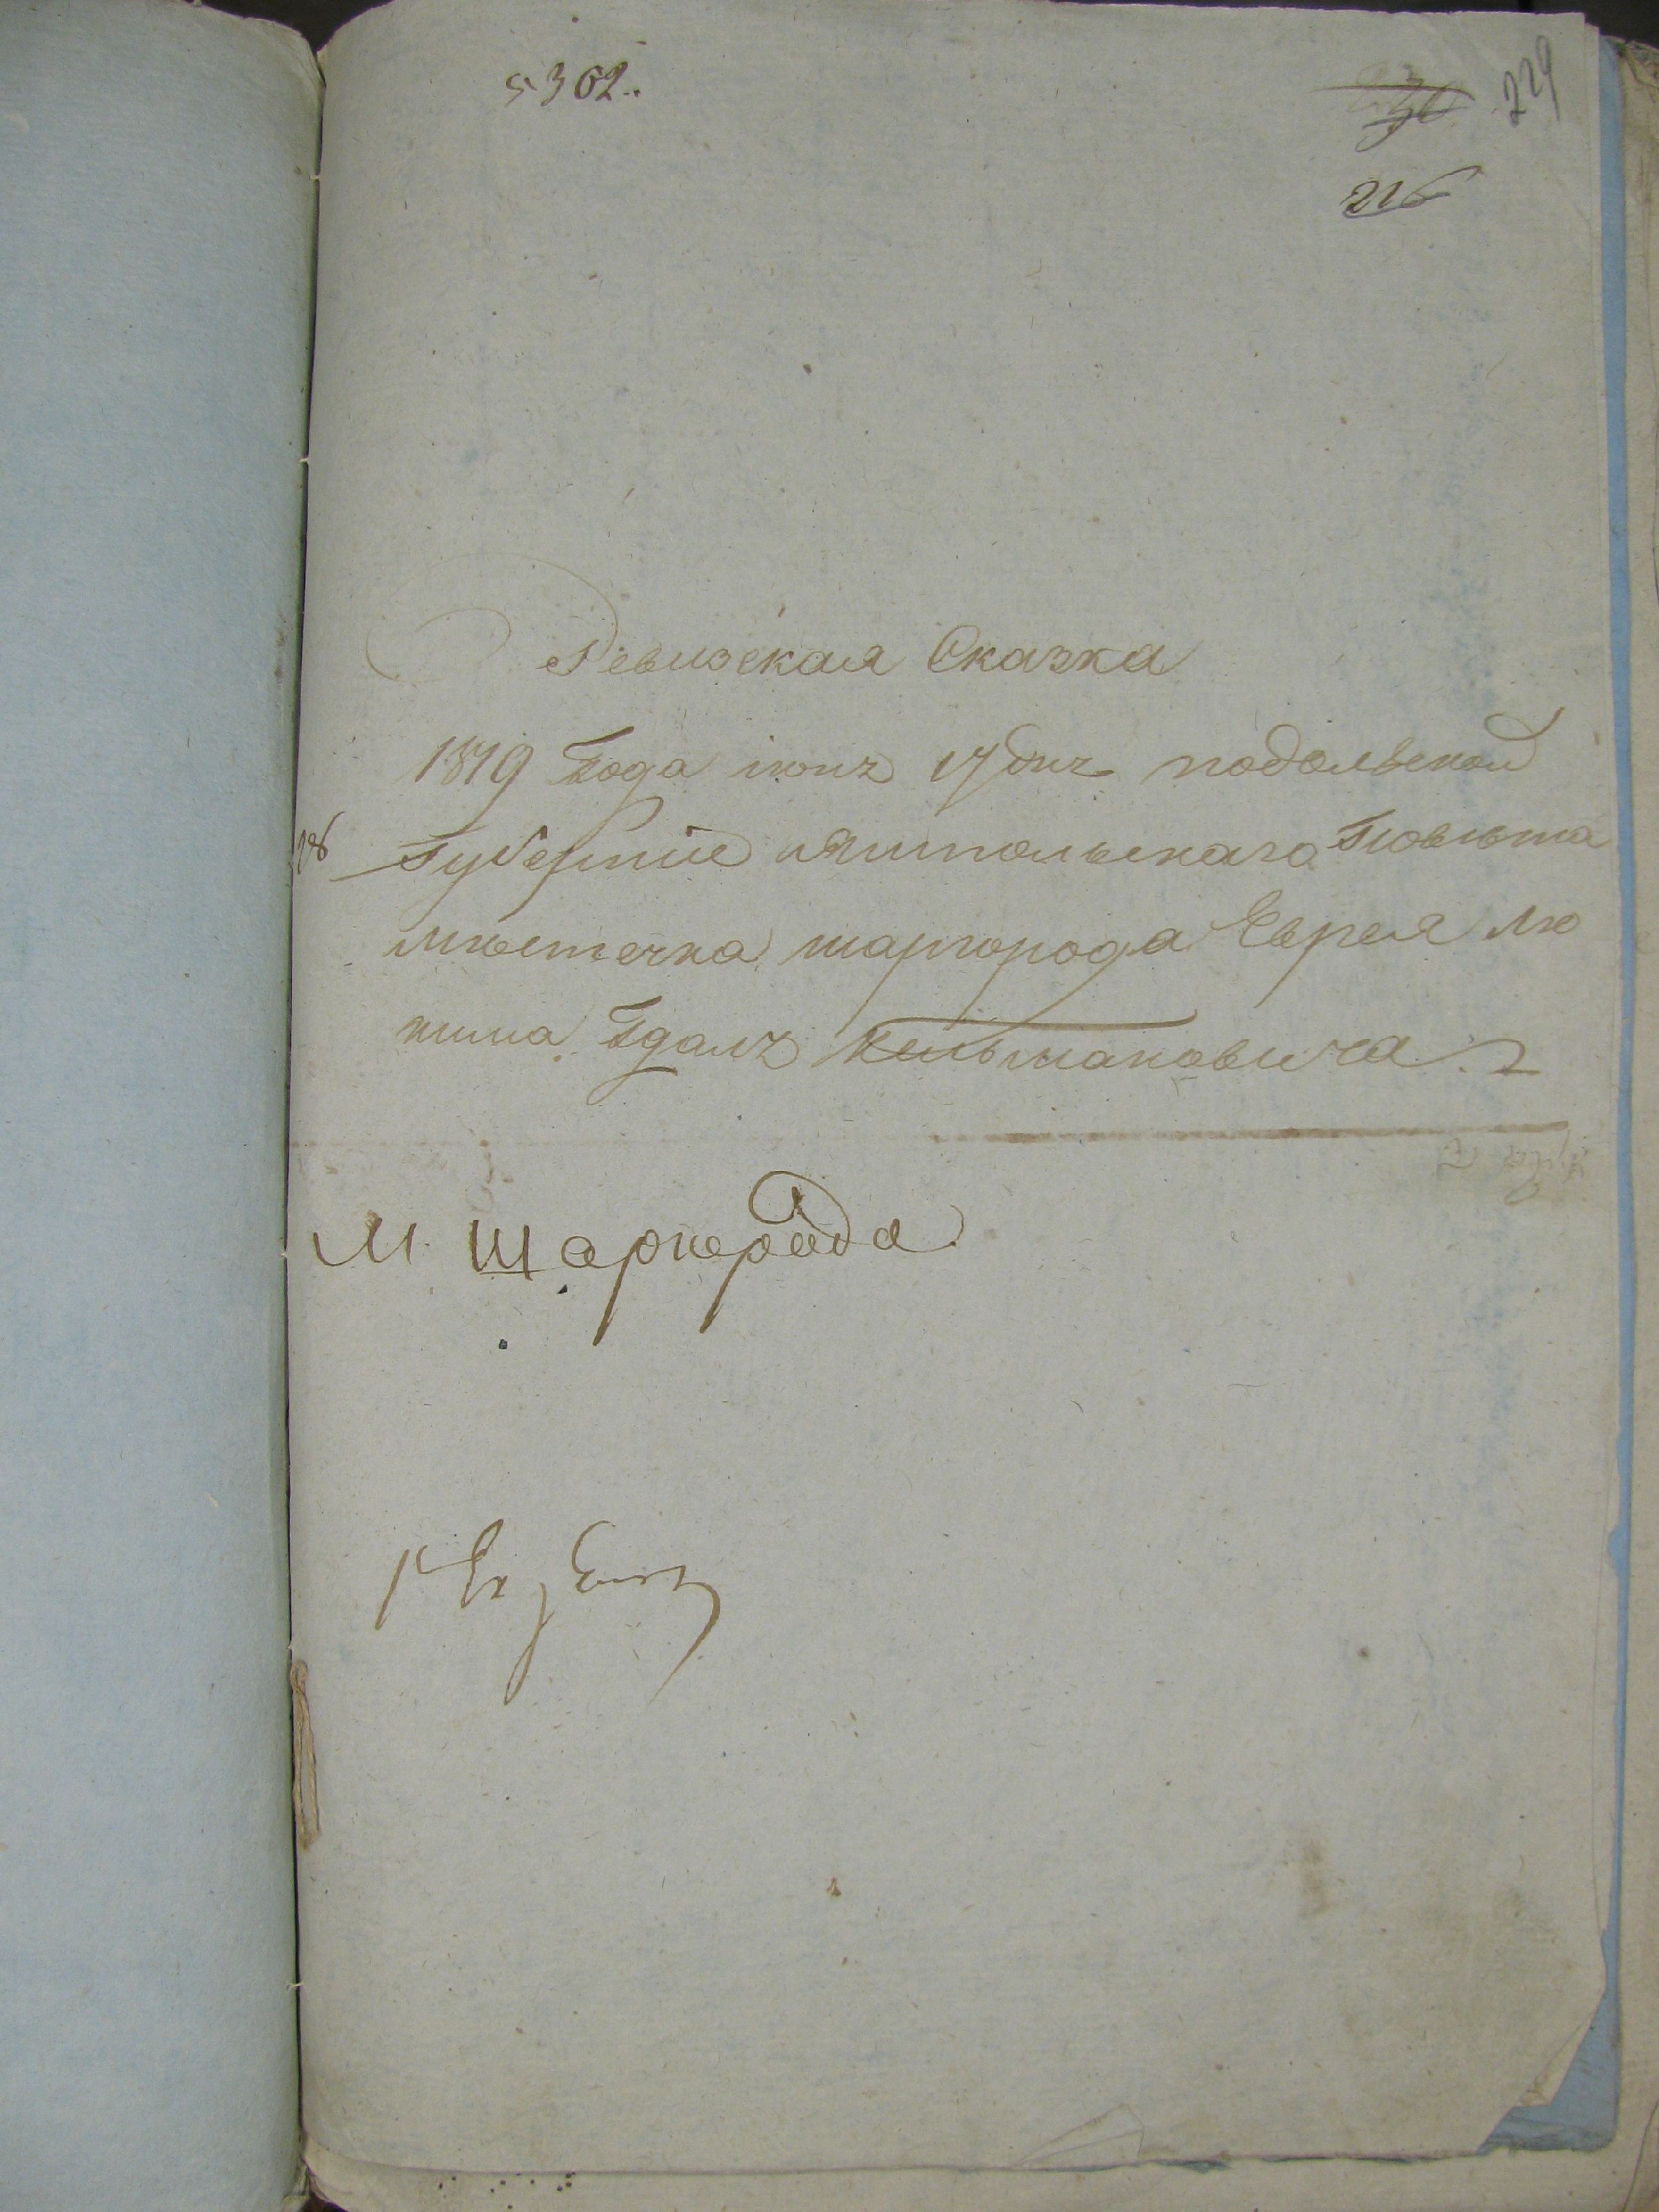 5362.
229
216
Ревизская Сказка
1819 Года июнъ 17 днъ подольской
Губернïе ямпольскаго Повѣта
мѣстечка шаргорода Еврея Лю
кима Гдалъ Кельмановича
М. Шаргорода